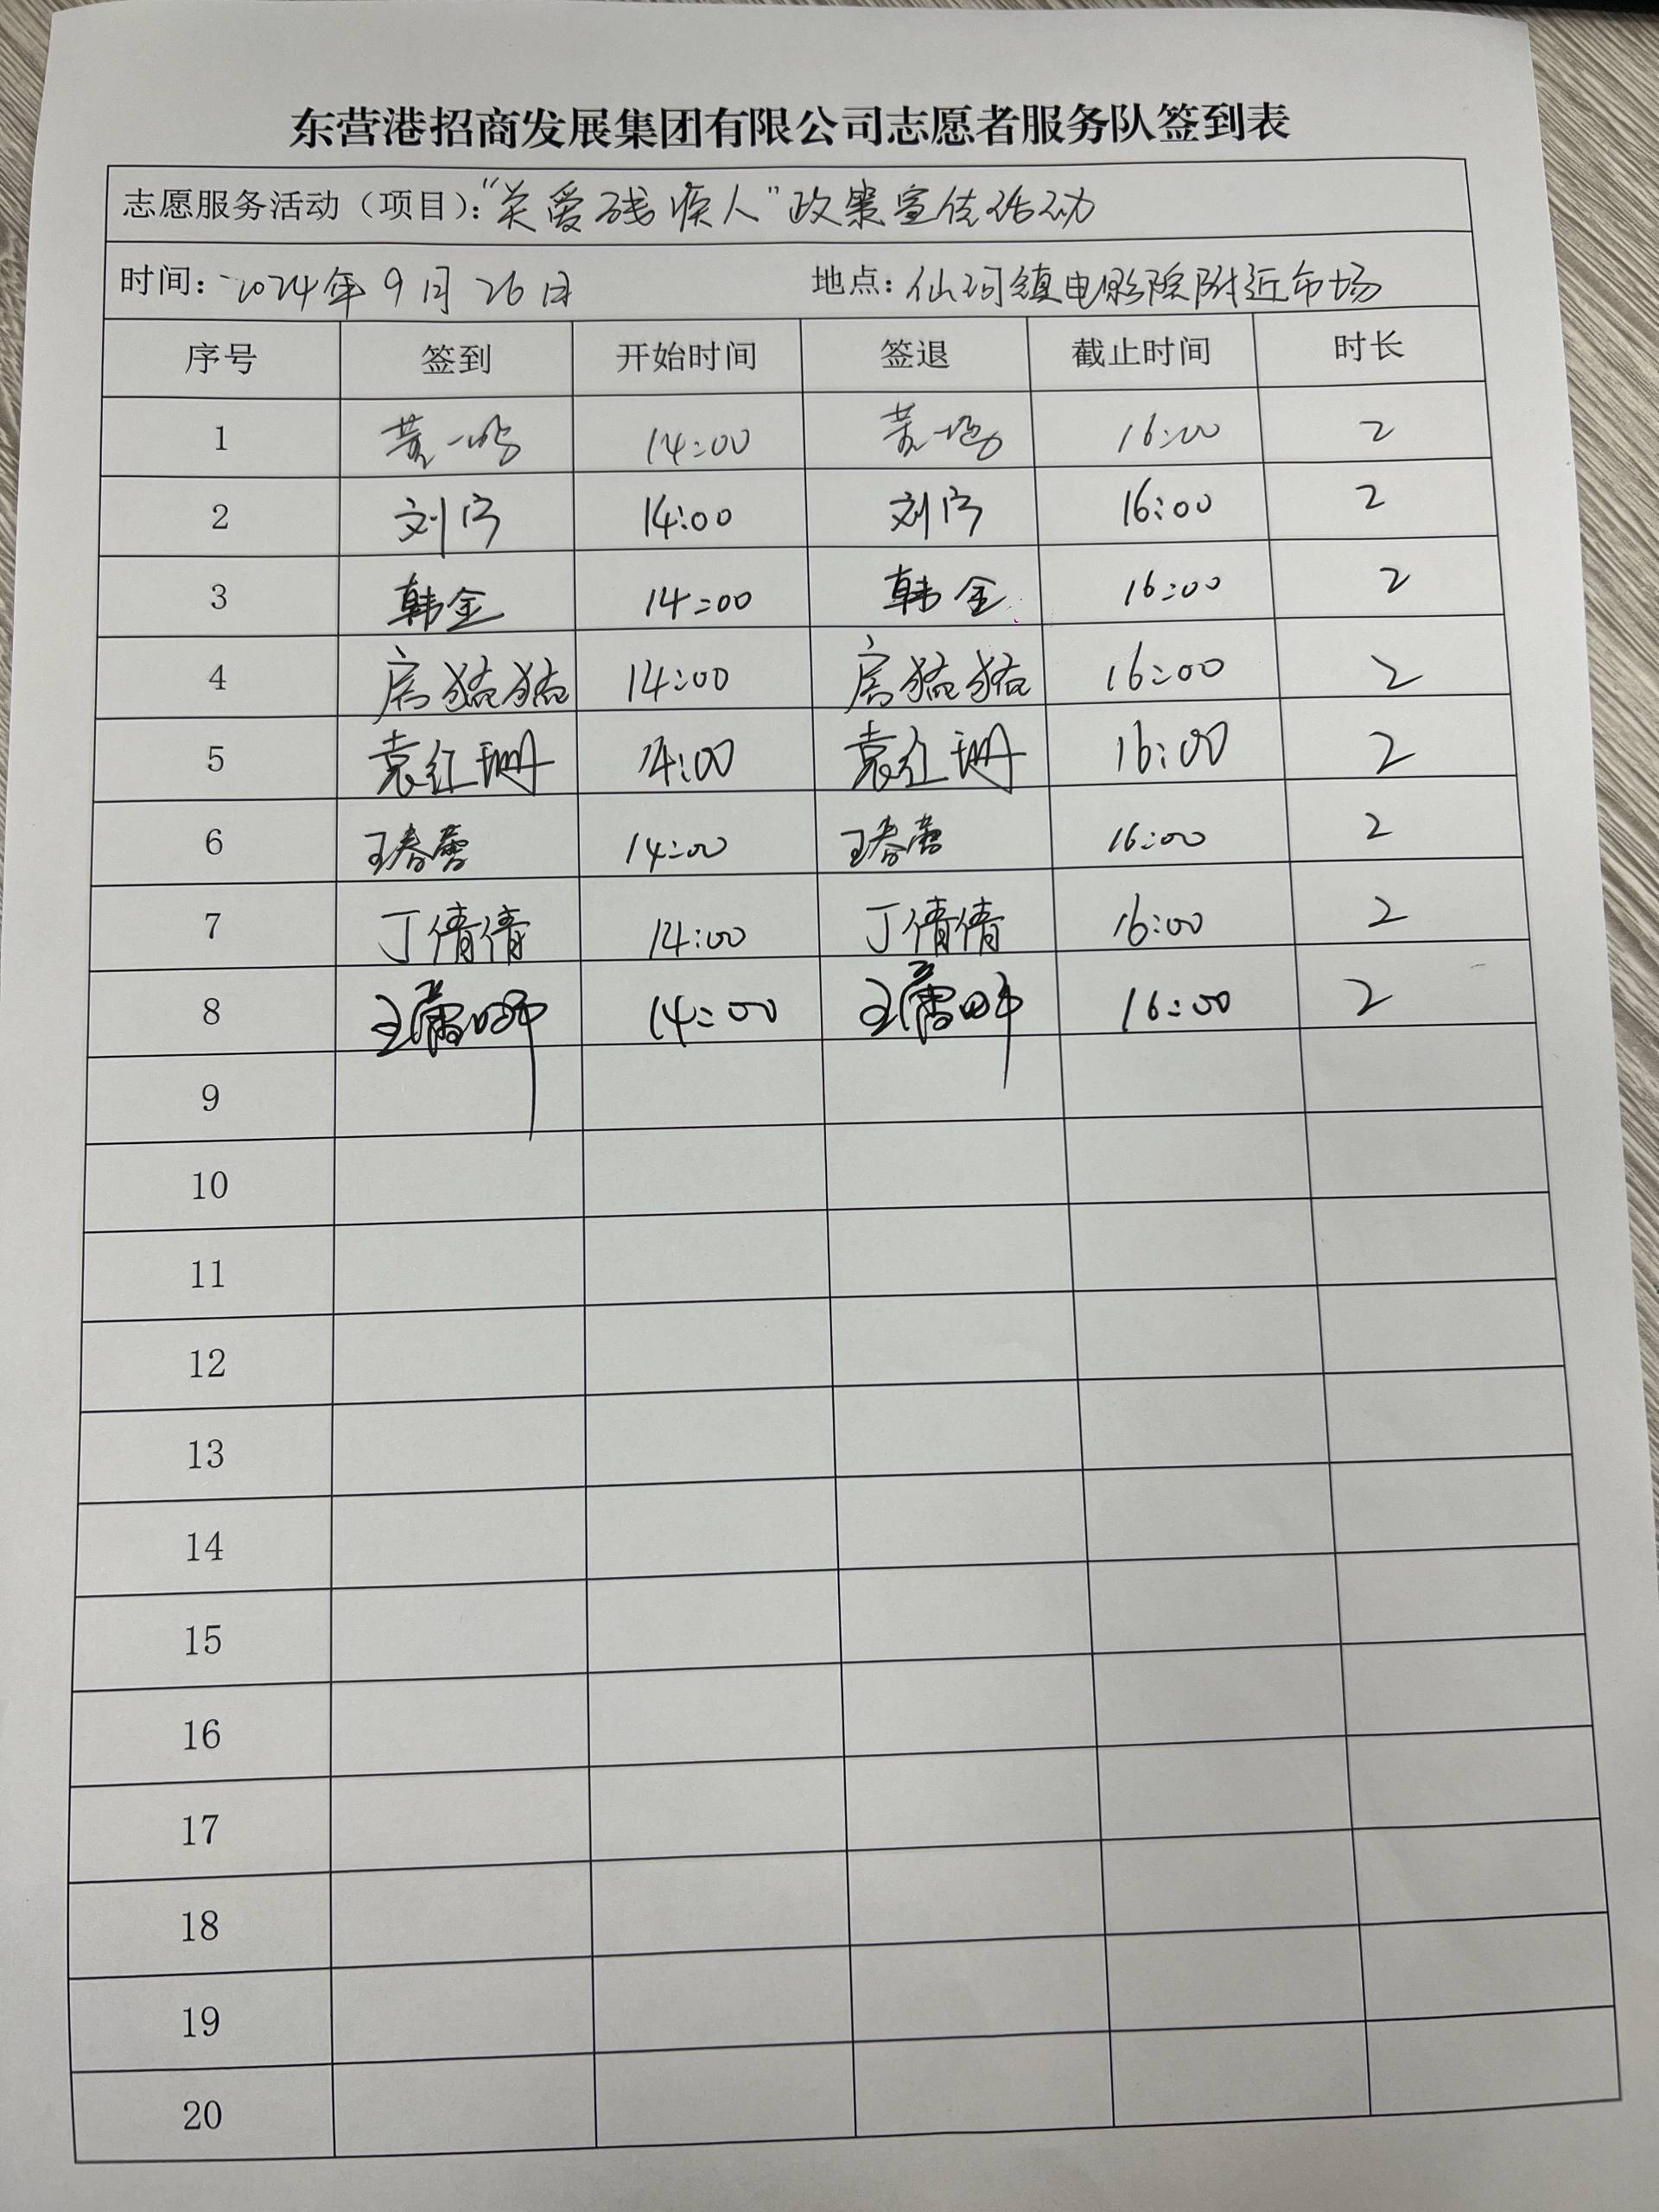 东营港招商发展集团有限公司志愿者服务队签到表
志愿服务活动（项目）：“关爱残疾人”政策宣传活动
时间：2024年9月26日 地点：仙河镇电影院附近市场
序号 签到 开始时间 签退 截止时间 时长
1 黄一鸣 14:00 黄一鸣 16:00 2
2 刘宁 14:00 刘宁 16:00 2
3 韩金 14:00 韩金 16:00 2
4 房猛猛 14:00 房猛猛 16:00 2
5 袁红珊 14:00 袁红珊 16:00 2
6 王春蕾 14:00 王春蕾 16:00 2
7 丁倩倩 14:00 丁倩倩 16:00 2
8 14:00 16:00 2
9
10
11
12
13
14
15
16
17
18
19
20